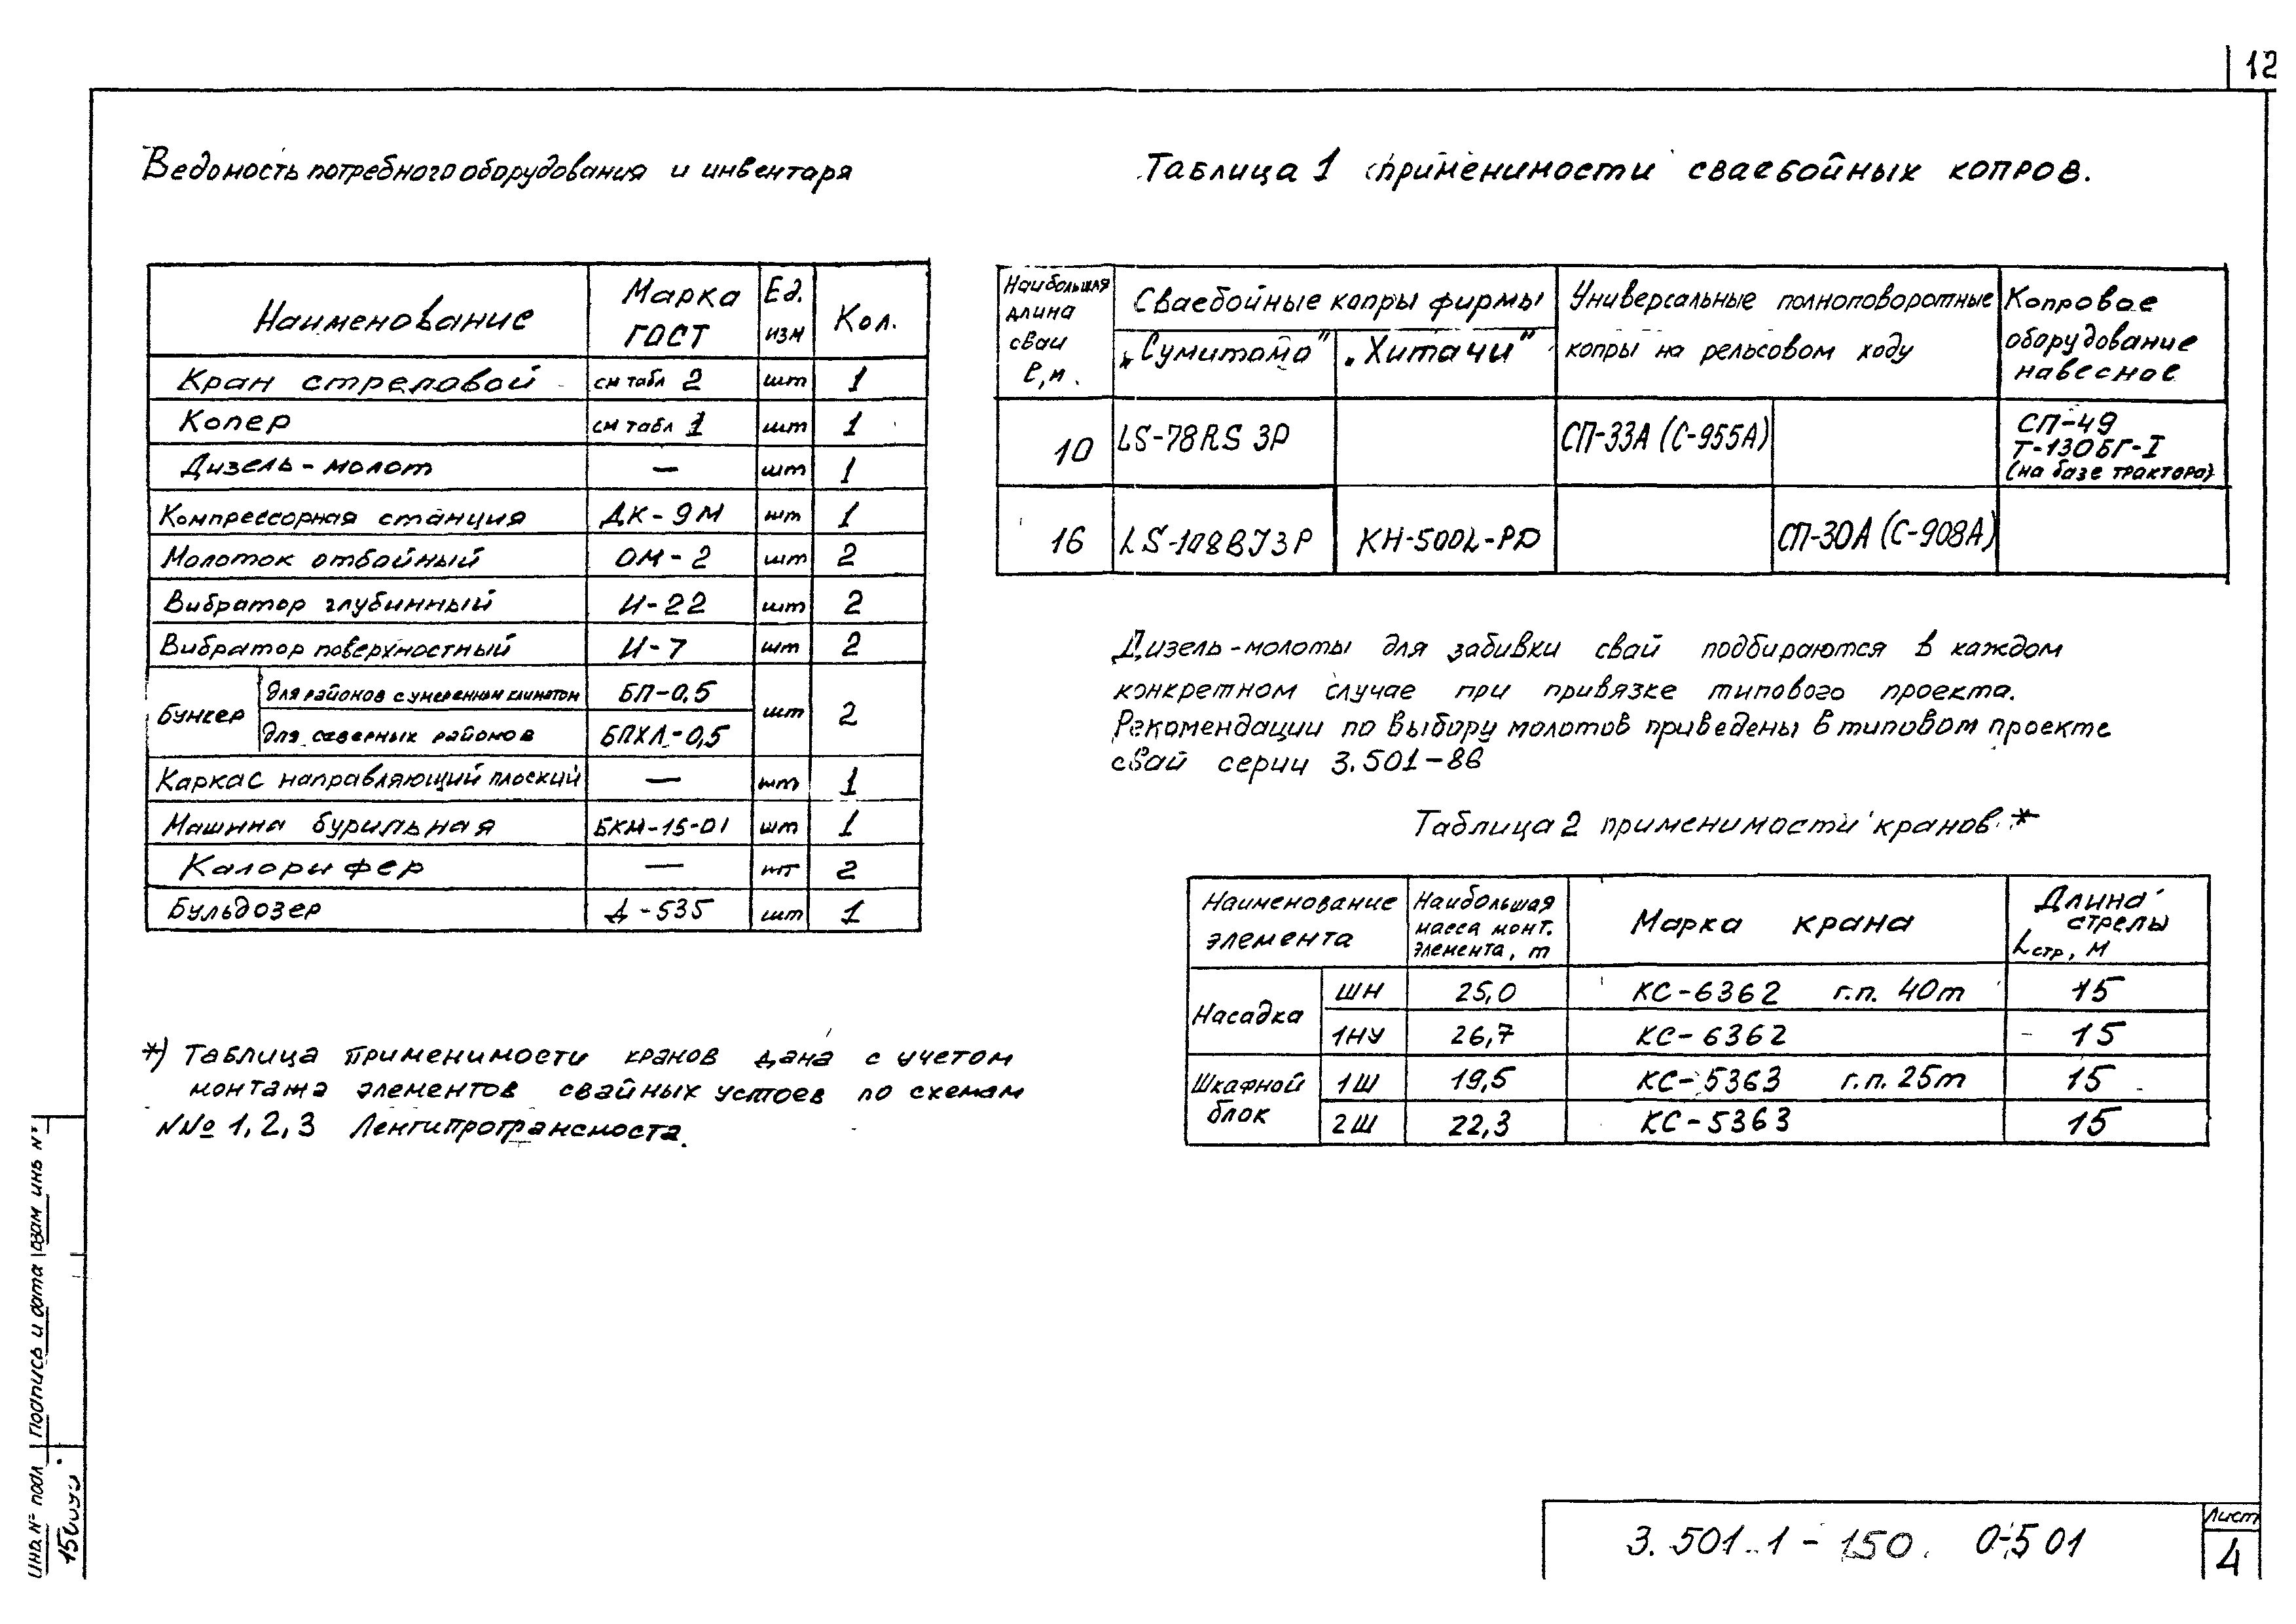 12
Ведомость потребного оборудования и инвентаря
Наименование Марка ГОСТ Ед. изм Кол.
Кран стреловой см табл 2 шт 1
Копер см табл 1 шт 1
Дизель-молот — шт 1
Компрессорная станция ДК-9М шт 1
Молоток отбойный ОМ-2 шт 2
Вибратор глубинный И-22 шт 2
Вибратор поверхностный И-7 шт 2
Бункер для районов с умеренным климатом БП-0,5 шт 2
для северных районов БПХЛ-0,5
Каркас направляющий плоский — шт 1
Машина бурильная БКМ-15-01 шт 1
Калорифер — шт 2
Бульдозер Д-535 шт 1
*) Таблица применимости кранов дана с учетом
монтажа элементов свайных устоев по схемам
NN° 1, 2, 3 Ленгипротрансмоста.
Таблица 1 применимости сваебойных копров.
Наибольшая длина сваи ℓ, м.
Сваебойные копры фирмы
„Сумитомо" „Хитачи"
Универсальные полноповоротные
копры на рельсовом ходу
Копровое
оборудование
навесное
10 LS-78RS 3P СП-33А (С-955А) СП-49
Т-130БГ-I
(на базе трактора)
16 LS-108BJ3P KH-500L-PD СП-30А (С-908А)
Дизель-молоты для забивки свай подбираются в каждом
конкретном случае при привязке типового проекта.
Рекомендации по выбору молотов приведены в типовом проекте
свай серии
Таблица 2 применимости кранов *
Наименование элемента
Наибольшая масса монт. элемента, т
Марка крана
Длина стрелы Lстр, м
Насадка ШН 25,0 КС-6362 г.п. 40т 15
1НУ 26,7 КС-6362 15
Шкафной блок 1Ш 19,5 КС-5363 г.п. 25т 15
2Ш 22,3 КС-5363 15
Инв. № подл Подпись и дата Взам инв №
3.501.1-150. 0-501
Лист
4